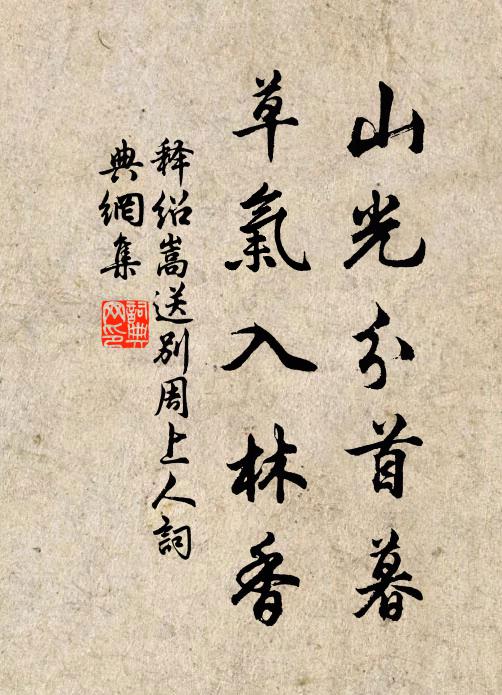 山光分首暮
草氣入林香
释绍嵩送别周上人詞
典網集
詞典
网印